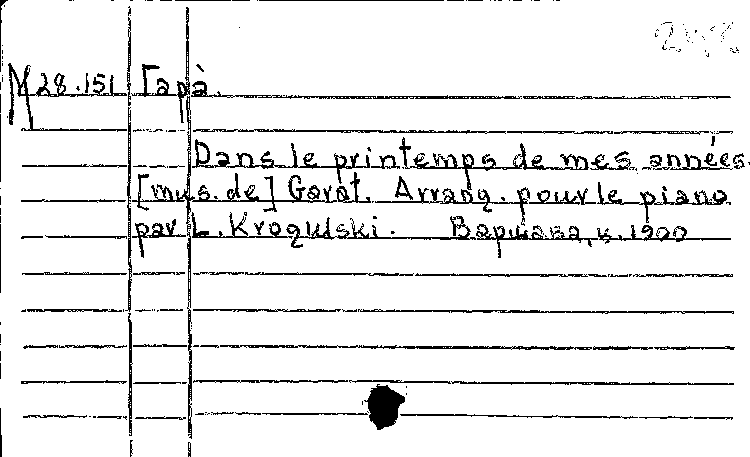 M 28.151 Гарà.
Dans le printemps de mes années.
[mus. de] Garat. Arrang. pour le piano
par L. Krogulski. Варшава, ц. 1900